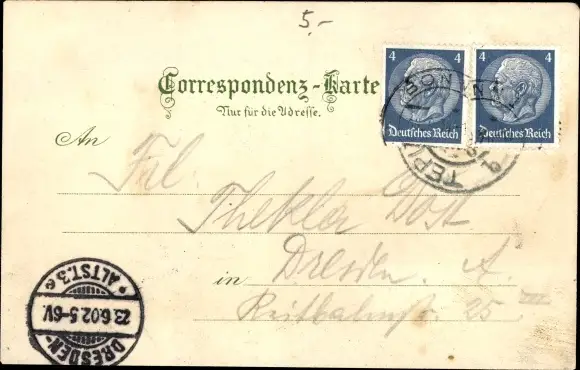 5.-
4 4
Correspondenz-Karte
Nur für die Adresse.
Deutsches Reich Deutsches Reich
TEPL
An Frl.
Thekla Dost
in Dresden. A
Reitbahnstr. 25 III
DRESDEN-
ALTST. 3 e
23.6.02.5-6V.